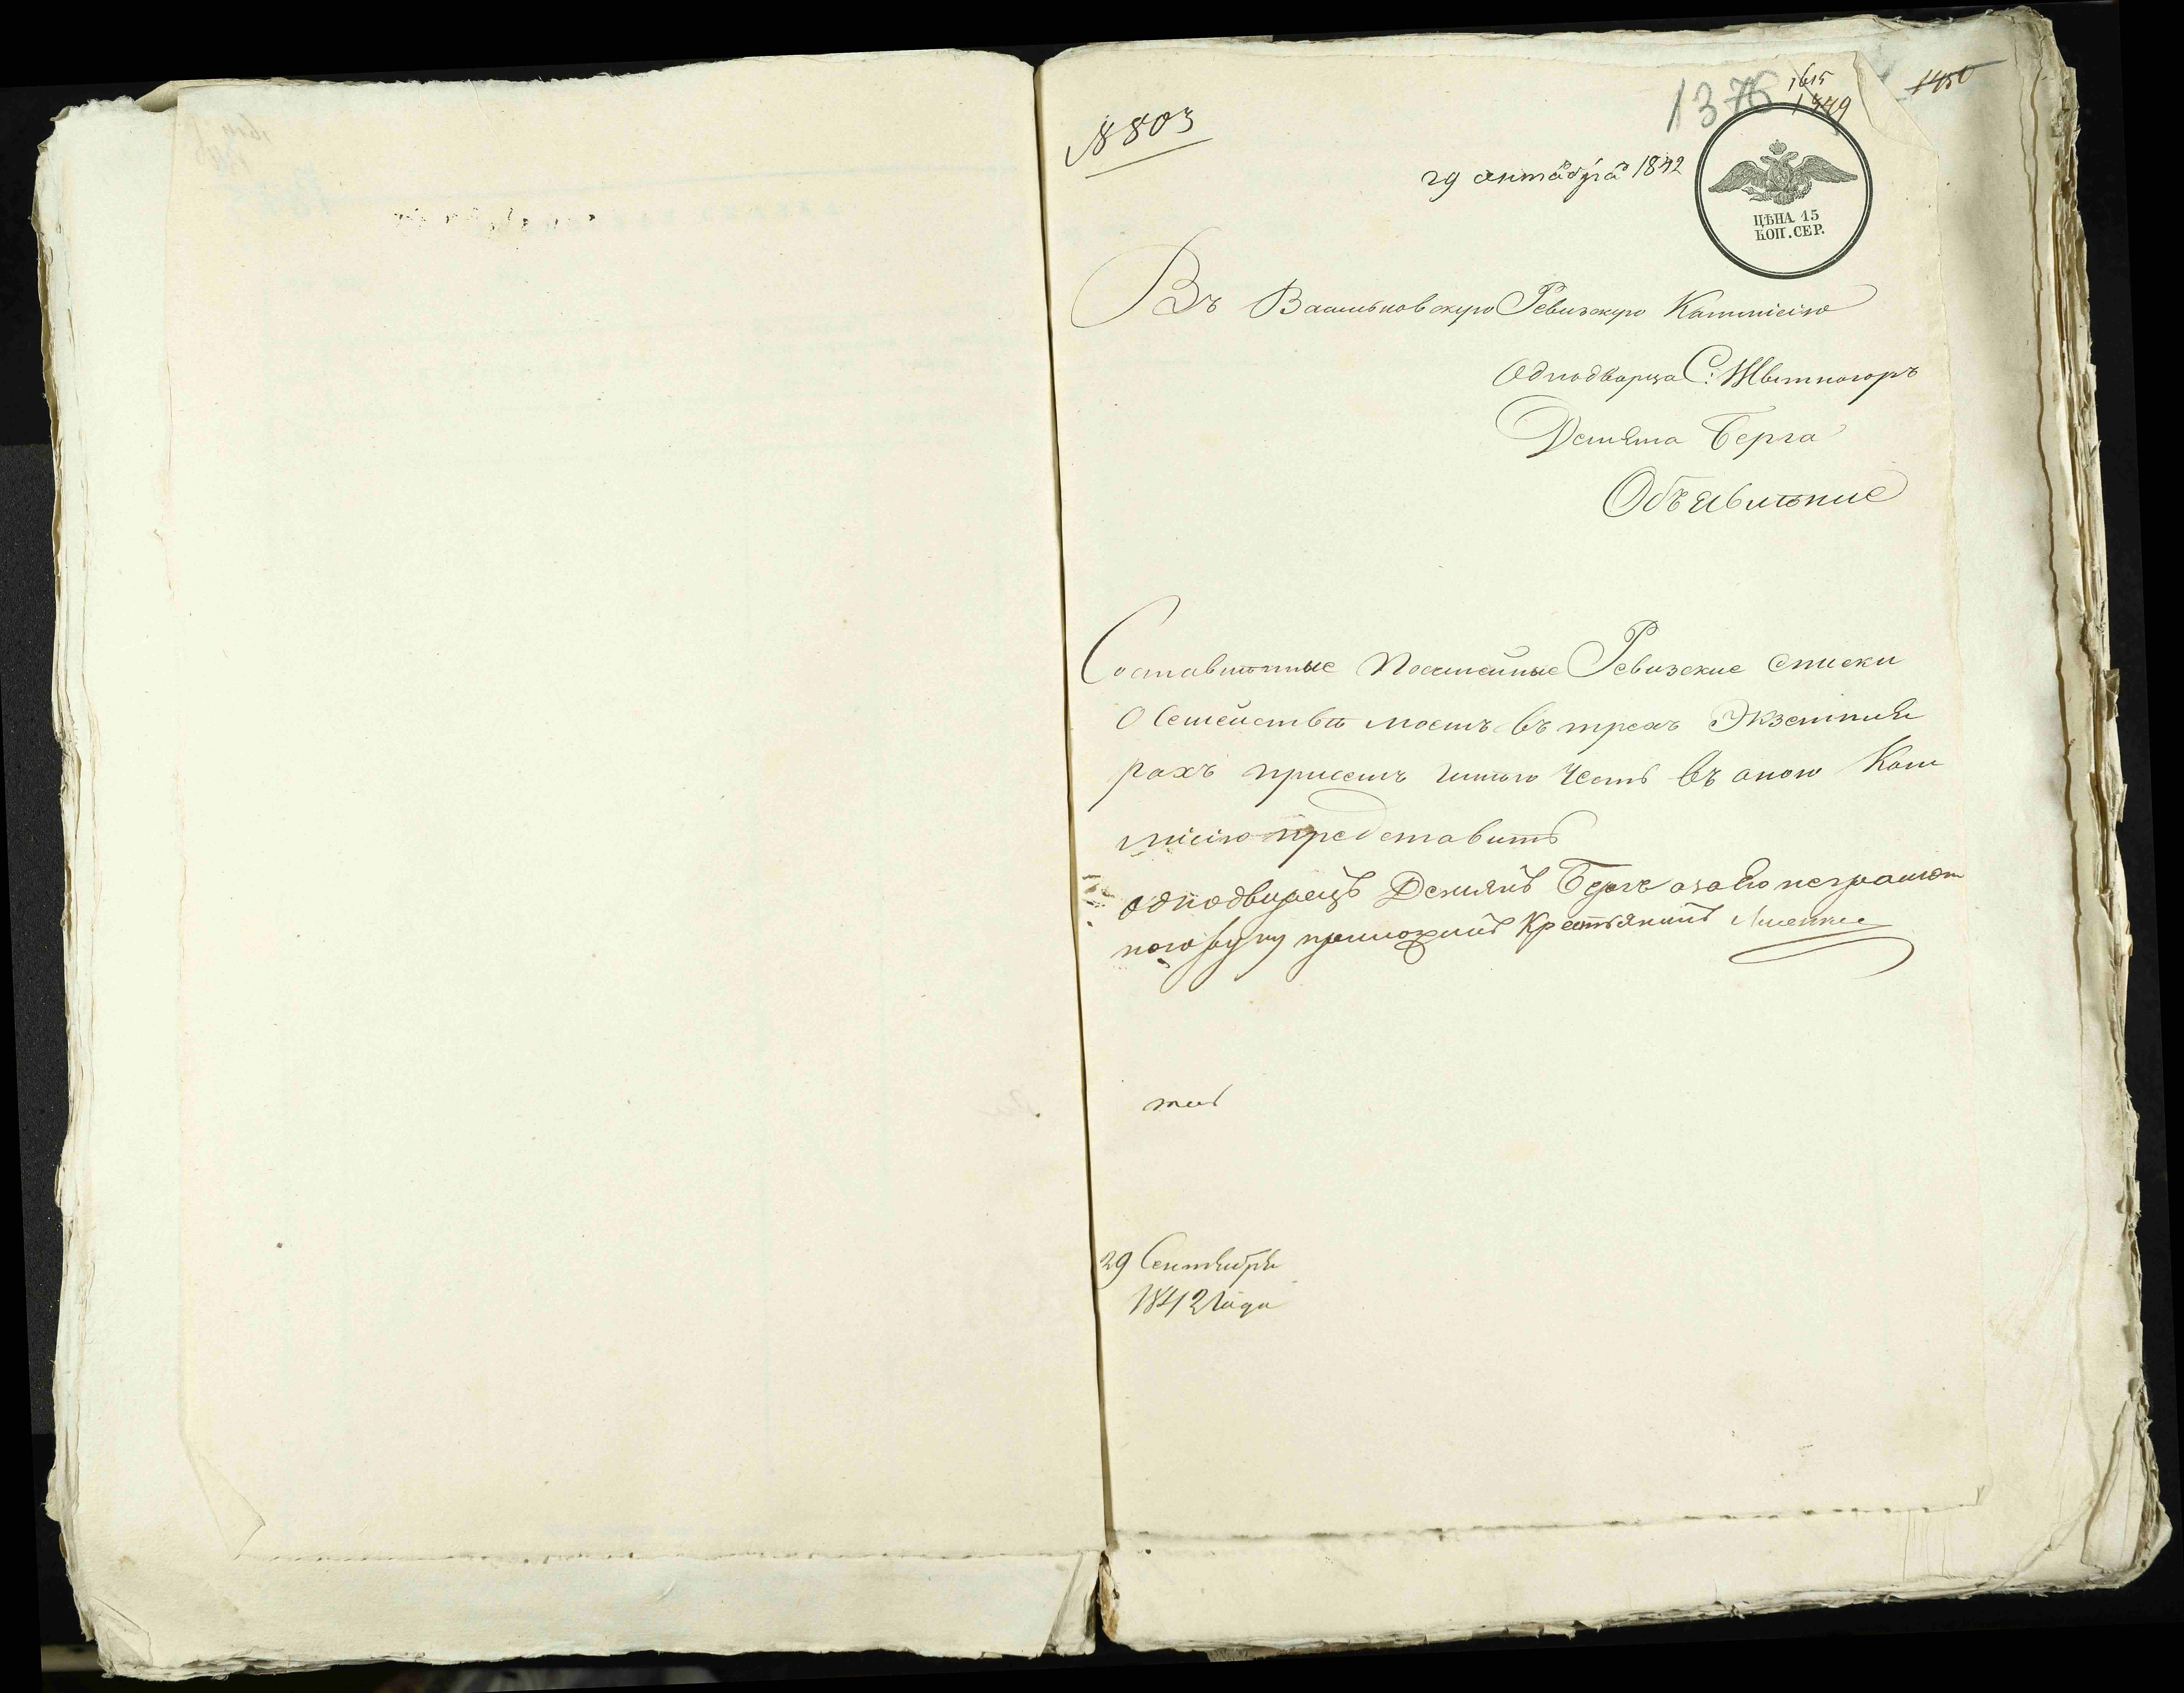 № 803
1376 1615
1449
1450
29 октября 1842
ЦѢНА 15
КОП. СЕР.
Въ Васильковскую Ревизскую Каммісію
Однодворца С: Жытногоръ
Демяна Берга
Объявленіе
Составленные Посемейные Ревизские списки
О Семействѣ моемъ въ трехъ Экземпля
рахъ присемъ имѣю Честь въ оною Ком
місію представить
однодворецъ Демянъ Бергъ а за его неграмот
ного руку приложилъ Крестьянинъ
29 Сентября
1842 Года